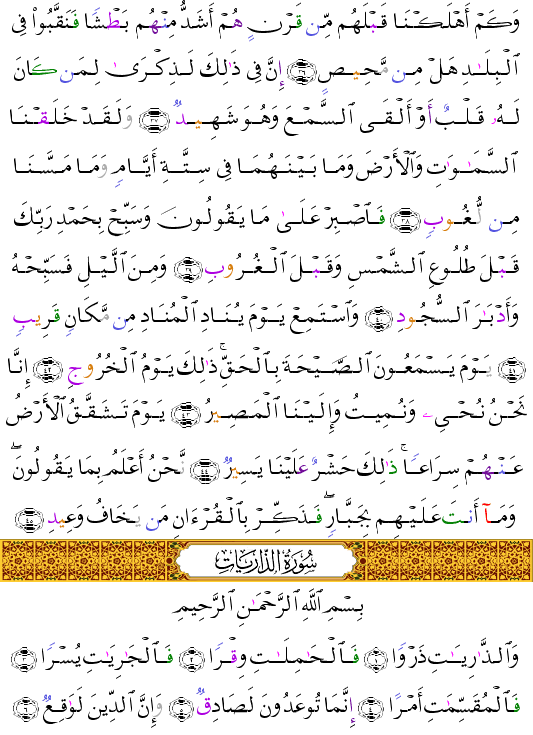 وَكَمْ أَهْلَكْنَا قَبْلَهُم مِّن قَرْنٍ هُمْ أَشَدُّ مِنْهُم بَطْشًا فَنَقَّبُوا۟ فِى
ٱلْبِلَـٰدِ هَلْ مِن مَّحِيصٍ ﴿٣٦﴾ إِنَّ فِى ذَٰلِكَ لَذِكْرَىٰ لِمَن كَانَ
لَهُۥ قَلْبٌ أَوْ أَلْقَى ٱلسَّمْعَ وَهُوَ شَهِيدٌ ﴿٣٧﴾ وَلَقَدْ خَلَقْنَا
ٱلسَّمَـٰوَٰتِ وَٱلْأَرْضَ وَمَا بَيْنَهُمَا فِى سِتَّةِ أَيَّامٍ وَمَا مَسَّنَا
مِن لُّغُوبٍ ﴿٣٨﴾ فَٱصْبِرْ عَلَىٰ مَا يَقُولُونَ وَسَبِّحْ بِحَمْدِ رَبِّكَ
قَبْلَ طُلُوعِ ٱلشَّمْسِ وَقَبْلَ ٱلْغُرُوبِ ﴿٣٩﴾ وَمِنَ ٱلَّيْلِ فَسَبِّحْهُ
وَأَدْبَـٰرَ ٱلسُّجُودِ ﴿٤٠﴾ وَٱسْتَمِعْ يَوْمَ يُنَادِ ٱلْمُنَادِ مِن مَّكَانٍ قَرِيبٍ
﴿٤١﴾ يَوْمَ يَسْمَعُونَ ٱلصَّيْحَةَ بِٱلْحَقِّ ۚ ذَٰلِكَ يَوْمُ ٱلْخُرُوجِ ﴿٤٢﴾ إِنَّا
نَحْنُ نُحْىِۦ وَنُمِيتُ وَإِلَيْنَا ٱلْمَصِيرُ ﴿٤٣﴾ يَوْمَ تَشَقَّقُ ٱلْأَرْضُ
عَنْهُمْ سِرَاعًا ۚ ذَٰلِكَ حَشْرٌ عَلَيْنَا يَسِيرٌ ﴿٤٤﴾ نَّحْنُ أَعْلَمُ بِمَا يَقُولُونَ ۖ
وَمَآ أَنتَ عَلَيْهِم بِجَبَّارٍ ۖ فَذَكِّرْ بِٱلْقُرْءَانِ مَن يَخَافُ وَعِيدِ ﴿٤٥﴾
سُورَةُ الذَّارِيَاتِ
بِسْمِ ٱللَّهِ ٱلرَّحْمَـٰنِ ٱلرَّحِيمِ
وَٱلذَّٰرِيَـٰتِ ذَرْوًا ﴿١﴾ فَٱلْحَـٰمِلَـٰتِ وِقْرًا ﴿٢﴾ فَٱلْجَـٰرِيَـٰتِ يُسْرًا ﴿٣﴾
فَٱلْمُقَسِّمَـٰتِ أَمْرًا ﴿٤﴾ إِنَّمَا تُوعَدُونَ لَصَادِقٌ ﴿٥﴾ وَإِنَّ ٱلدِّينَ لَوَٰقِعٌ ﴿٦﴾